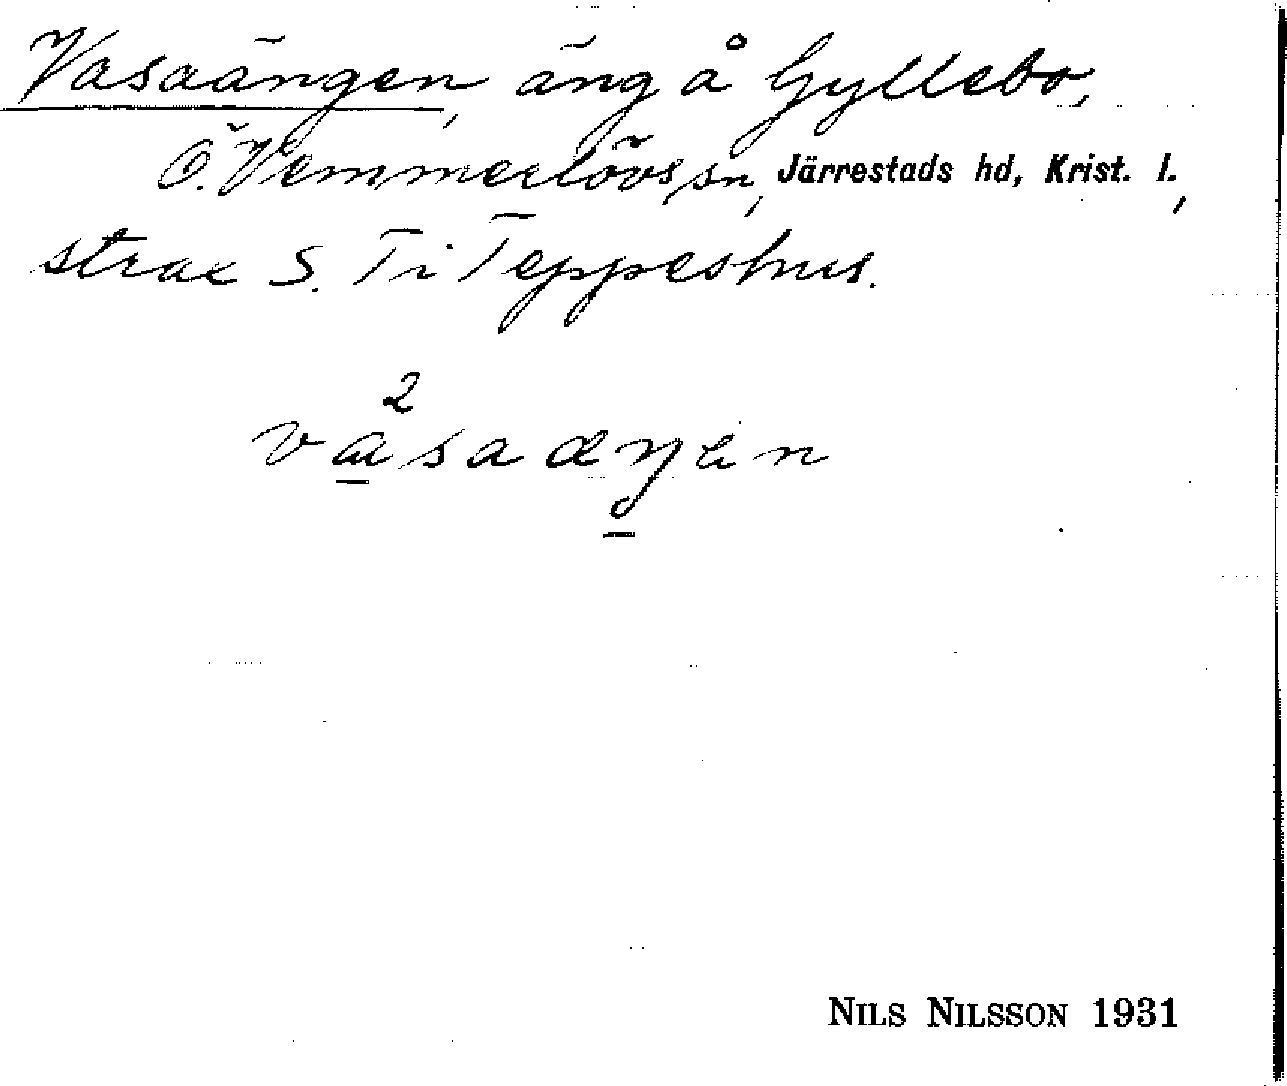 Vasaängen, äng å Gyllebo,
Ö. Vemmerlövs sn, Järrestads hd, Krist. l.,
strax S. Ti Teppeshus.
2
vasaæŋən
NILS NILSSON 1931